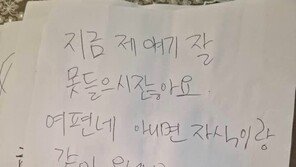 지금 제 얘기 잘
못들으시잖아요.
여편네 아니면 자식이랑
같이